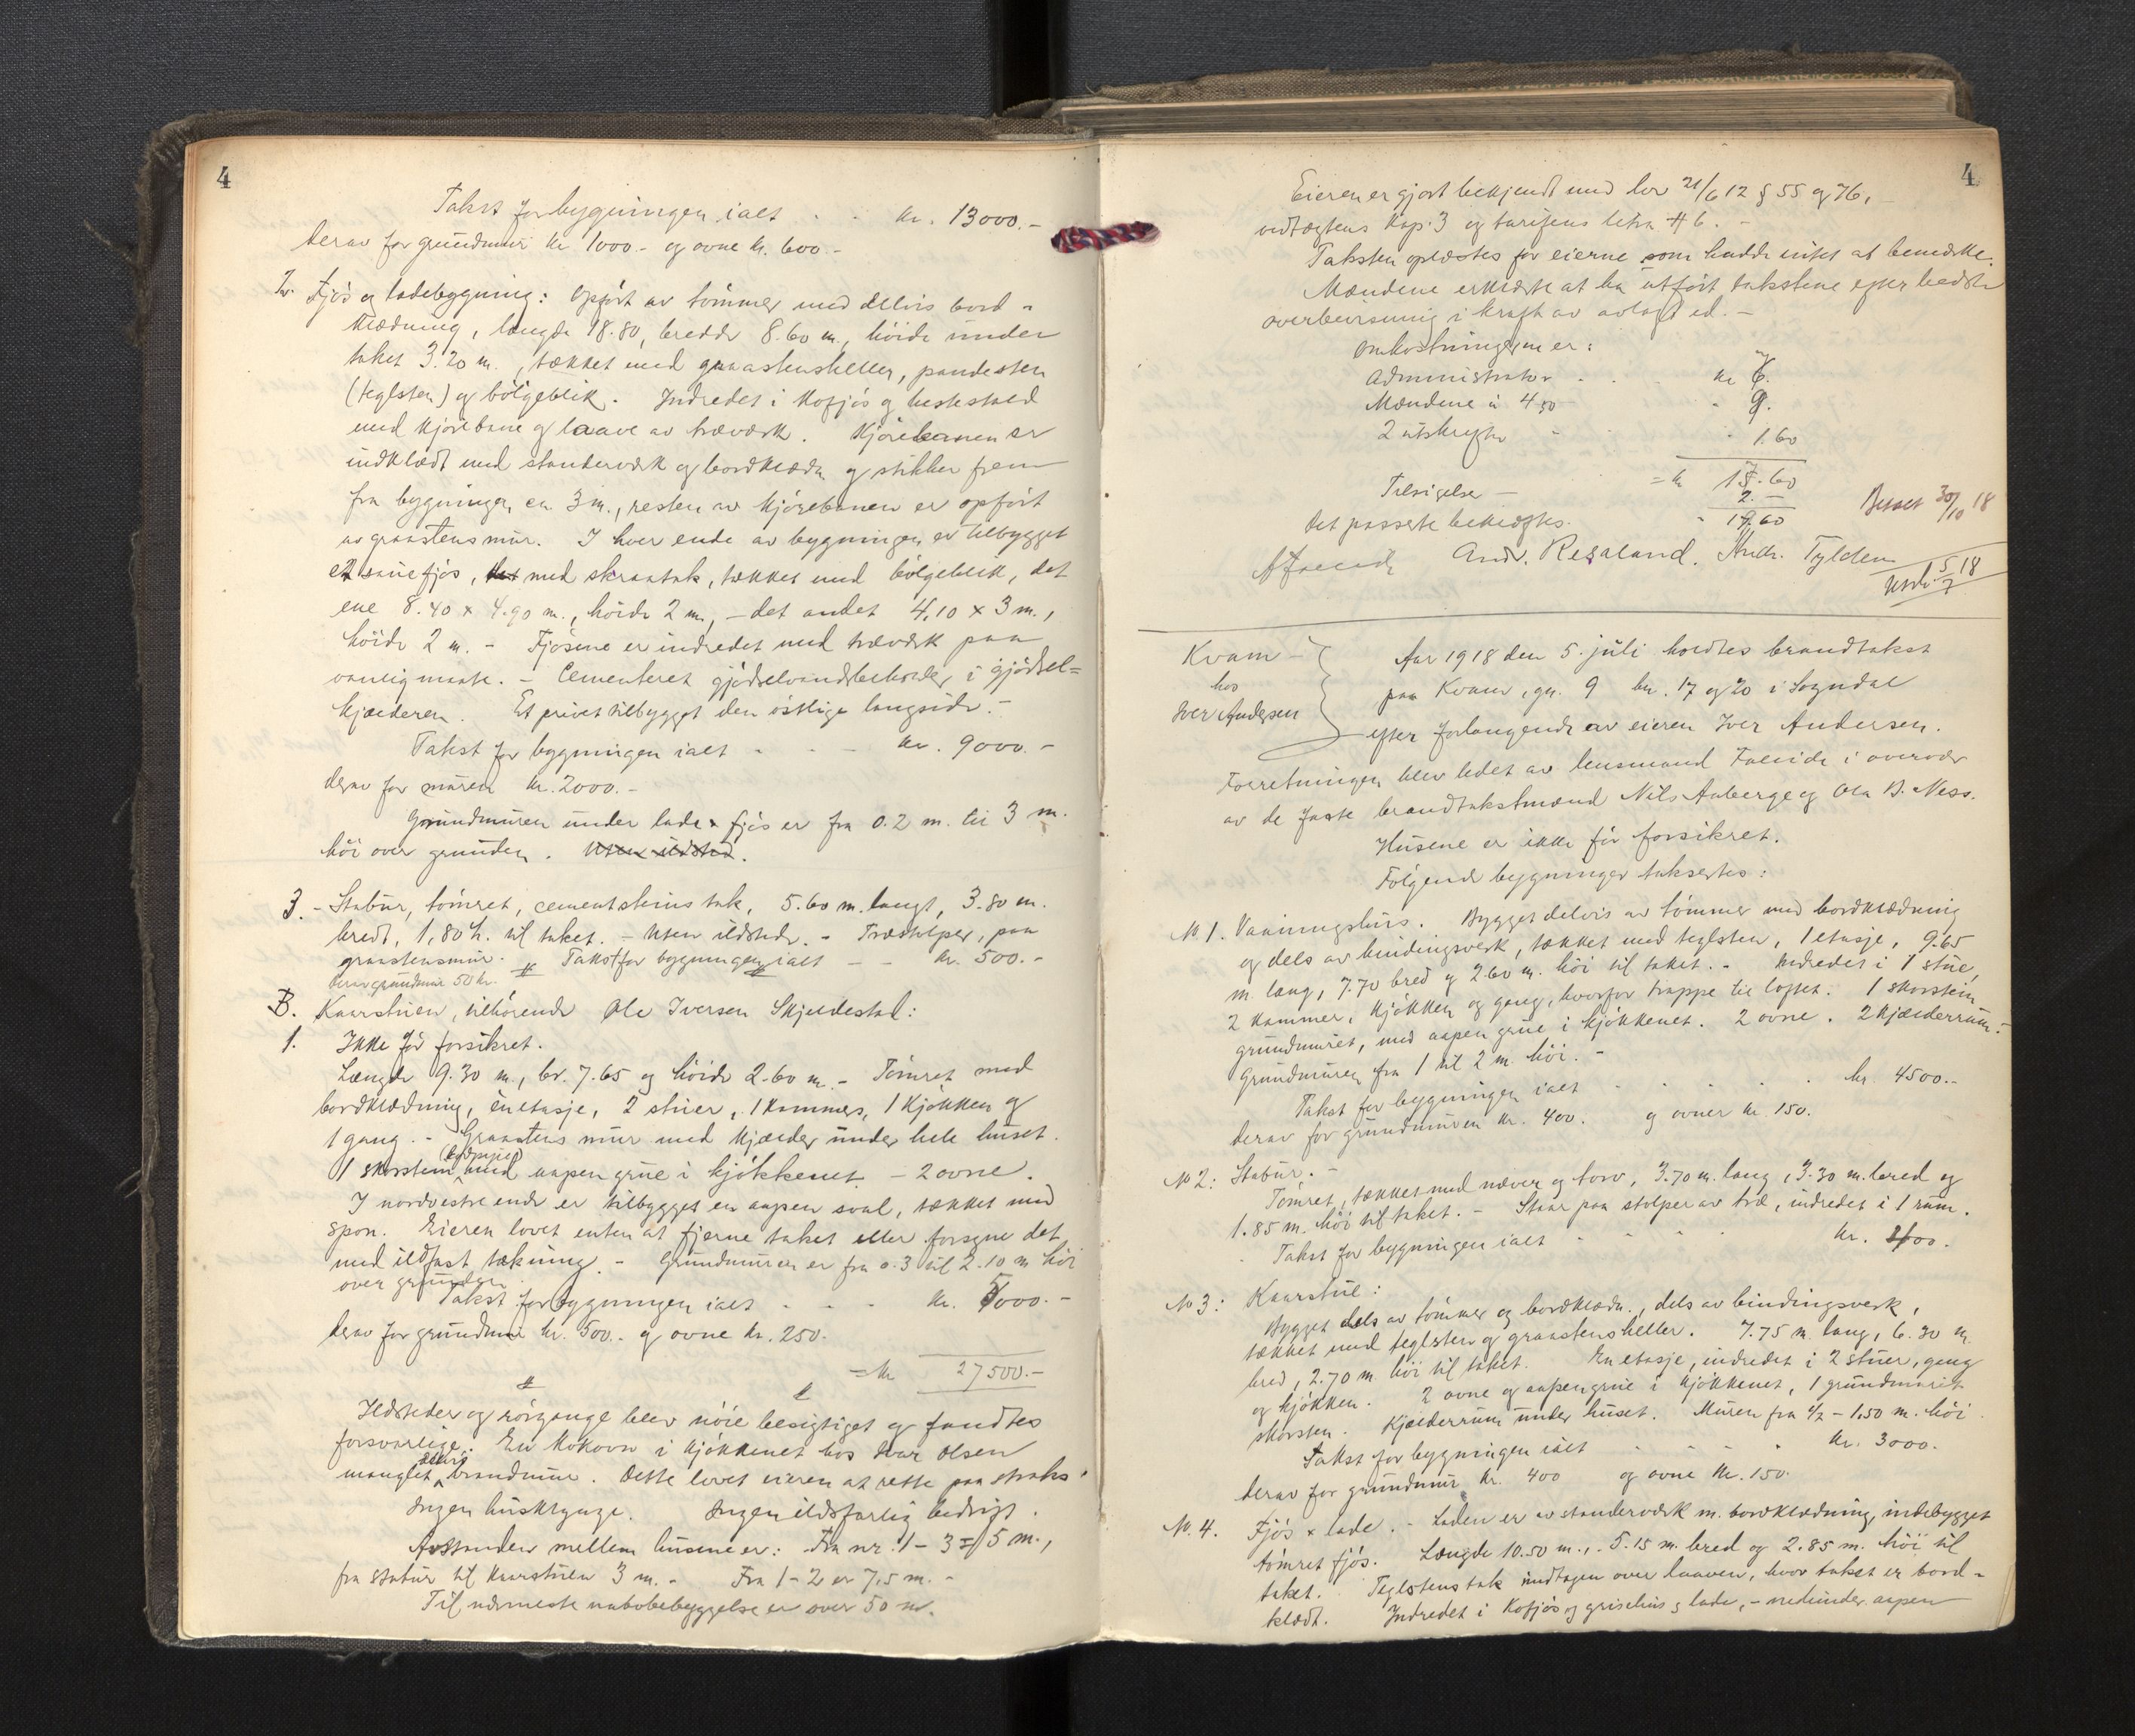 4
Takst for bygningen ialt - - kr. 13000.-
derav for grundmur kr 1000.- og ovne kr. 600.-
2. Fjøs og ladebygning: Opført av tømmer med delvis bord-
klædning, længde 18.80, bredde 8.60 m., høide under
taket 3.20 m., tækket med graastensheller, pandesten
(teglsten) og bølgeblik. Indredet i kofjøs og hestestald
med kjørebane og laave av træværk. Kjørebanen er
indklædt med standerværk og bordklædn. og stikker frem
fra bygningen ca 3 m., resten av kjørebanen er opført
av graastensmur. I hver ende av bygningen er tilbygget
et sauefjøs, med skraatak, tækket med bølgeblik, det
ene 8.40 x 4.90 m., høide 2 m, - det andet 4,10 x 3 m.,
høide 2 m. - Fjøsene er indredet med træværk paa
vanlig maate. - Cementeret gjødselvandsbeholder i gjødsel=
kjælderen. Et privet tilbygget den østlige langside.-
Takst for bygningen ialt - - - kr. 9000.-
derav for muren kr. 2000.-
Grundmuren under lade & fjøs er fra 0.2 m. til 3 m.
høi over grunden. Uten ildsted.
3. - Stabur, tømret, cementstens tak, 5.60 m. langt, 3.80 m.
bredt, 1,80 h. til taket. - Uten ildsted. - Træstolper, paa
graastensmur. Takst for bygningen ialt - - kr. 500.-
derav grundmur 50 kr.
B. Kaarstuen, tilhørende Ole Iversen Skjeldestad:
1. Ikke før forsikret.
Længde 9.30 m., br. 7.65 og høide 2.60 m. - Tømret med
bordklædning, en etasje, 2 stuer, 1 kammer, 1 kjøkken og
1 gang. - Graastens mur med kjælder under hele huset.
1 skorsten med aapen grue i kjøkkenet - 2 ovne.
I nordvestre ende er tilbygget en aapen sval, tækket med
spon. Eieren lovet enten at fjerne taket eller forsyne det
med ildfast tækning. - Grundmuren er fra 0.3 til 2.10 m høi
over grunden.
Takst for bygningen ialt - - - kr. 5000.-
derav for grundmur kr. 500.- og ovne kr. 250.-
= kr 27500.-
Ildsteder og rørgange blev nøie besigtiget og fandtes
forsvarlige. En kokovn i kjøkkenet hos Ivar Olsen
manglet delvis brandmur. Dette lovet eieren at rette paa straks.
Ingen huskrynge. Ingen ildsfarlig bedrift.
Avstanden mellem husene er: Fra nr. 1 - 3 = 15 m.,
fra stabur til kaarstuen 3 m. - Fra 1 - 2 er 7,5 m. -
Til nærmeste nabobebyggelse er over 50 m.
4
Eieren er gjort bekjendt med lov 21/6 12 § 55 og 76,
vedtægtens kap. 3 og tarifens litra H 6. -
Taksten oplæstes for eierne som hadde intet at bemerke.
Mændene erklærte at ha utført takstene efter bedste
overbevisning i kraft av avlagt ed. -
Omkostningene er:
Administrator - - - kr 6.
Mændene à 4.50 - 9.
2 utskrifter - - 1.60
= kr
Tilsigelse - 2.-
Betalt 30/10 18
Det passerte bekræftes.
And. Resaland. Andr. Tylden
Utskr. 5/7 18
Kvam -
hos
Iver Andersen
Aar 1918 den 5. juli holdtes brandtakst
paa Kvam, gn. 9 bn. 17 og 20 i Sogndal
efter forlangende av eieren Iver Andersen.
Forretningen blev ledet av lensmand Faleide i overvær
av de faste brandtakstmænd Nils Aaberge og Ola B. Ness.
Husene er ikke før forsikret.
Følgende bygninger taksertes:
No 1. Vaaningshus. Bygget delvis av tømmer med bordklædning
og dels av bindingsverk, tækket med teglsten, 1 etasje, 9.65
m. lang, 7.70 bred og 2.60 m. høi til taket. - Indredet i 1 stue,
2 kammer, kjøkken og gang, hvorfor trappe til loftet. 1 skorstein
grundmuret, med aapen grue i kjøkkenet. 2 ovne. 2 kjælderrum.-
Grundmuren fra 1 til 2 m. høi. -
Takst for bygningen ialt - - - - kr. 4500.-
derav for grundmuren kr. 400. og ovner kr. 150.
No 2: Stabur. -
Tømret, tækket med næver og torv, 3.70 m. lang, 3.30 m. bred og
1.85 m. høi til taket. - Staar paa stolper av træ, indredet i 1 rum.
Takst for bygningen ialt - - - - kr. 00.
No 3: Kaarstue:
Bygget dels av tømmer og bordklædn., dels av bindingsverk,
tækket med teglsten og graastensheller. 7.75 m. lang, 6.30 m.
bred, 2.70 m. høi til taket. En etasje, indredet i 2 stuer, gang
og kjøkken. 2 ovne og aapen grue i kjøkkenet, 1 grundmuret
skorsten. Kjælderrum under huset. Muren fra 1/2 - 1.50 m. høi.
Takst for bygningen ialt - - - - kr. 3000.
derav for grundmur kr. 400 og ovne kr. 150.
No. 4. Fjøs & lade. - Laden er av standerværk m. bordklædning, indebygget
tømret fjøs. Længde 10.50 m., 5.15 m. bred og 2.85 m. høi til
taket. Teglstenstak undtagen over laaven, hvor taket er bord-
klædt. Indredet i kofjøs og grisehus & lade, - nedunder aapen